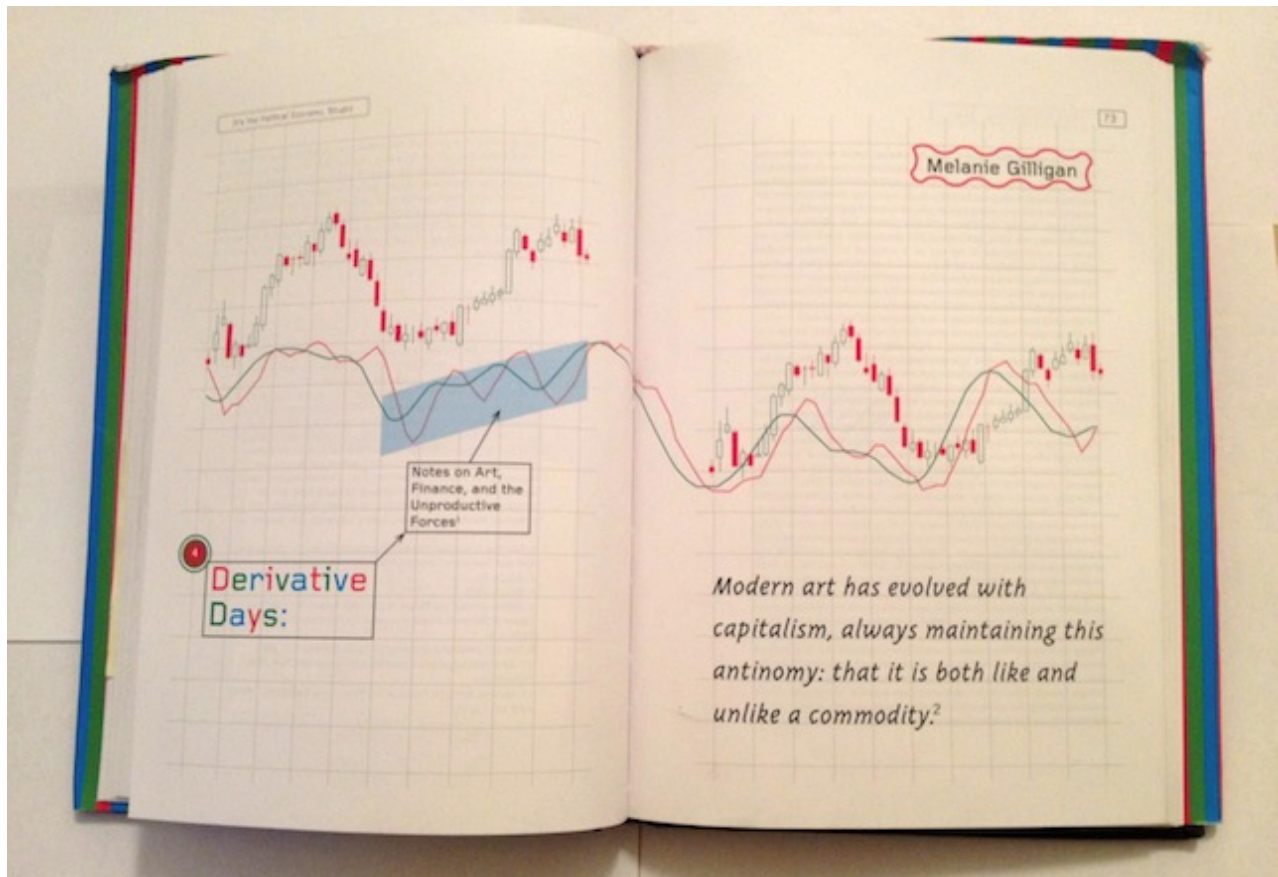 It's the Political Economy, Stupid
73
Melanie Gilligan
Notes on Art,
Finance, and the
Unproductive
Forces¹
4
Derivative
Days:
Modern art has evolved with
capitalism, always maintaining this
antinomy: that it is both like and
unlike a commodity.²